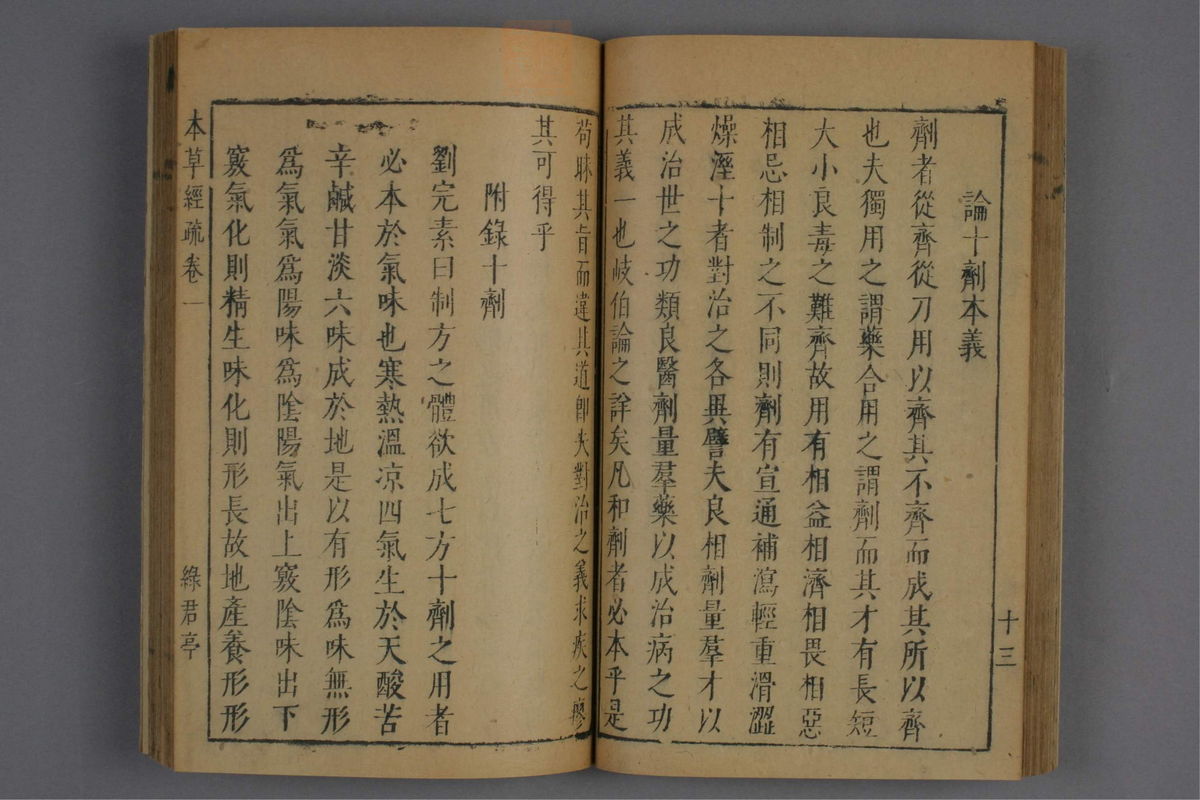 十三
論十劑本義
劑者從齊從刀用以齊其不齊而成其所以齊
也夫獨用之謂藥合用之謂劑而其才有長短
大小良毒之難齊故用有相益相濟相畏相惡
相忌相制之不同則劑有宣通補瀉輕重滑澀
燥溼十者對治之各異譬夫良相劑量羣才以
成治世之功類良醫劑量羣藥以成治病之功
其義一也岐伯論之詳矣凡和劑者必本乎是
苟昧其旨而違其道卽失對治之義求疾之瘳
其可得乎
附錄十劑
劉完素曰制方之體欲成七方十劑之用者
必本於氣味也寒熱溫凉四氣生於天酸苦
辛鹹甘淡六味成於地是以有形爲味無形
爲氣氣爲陽味爲陰陽氣出上竅陰味出下
竅氣化則精生味化則形長故地產養形形
本草經疏卷一
綠君亭